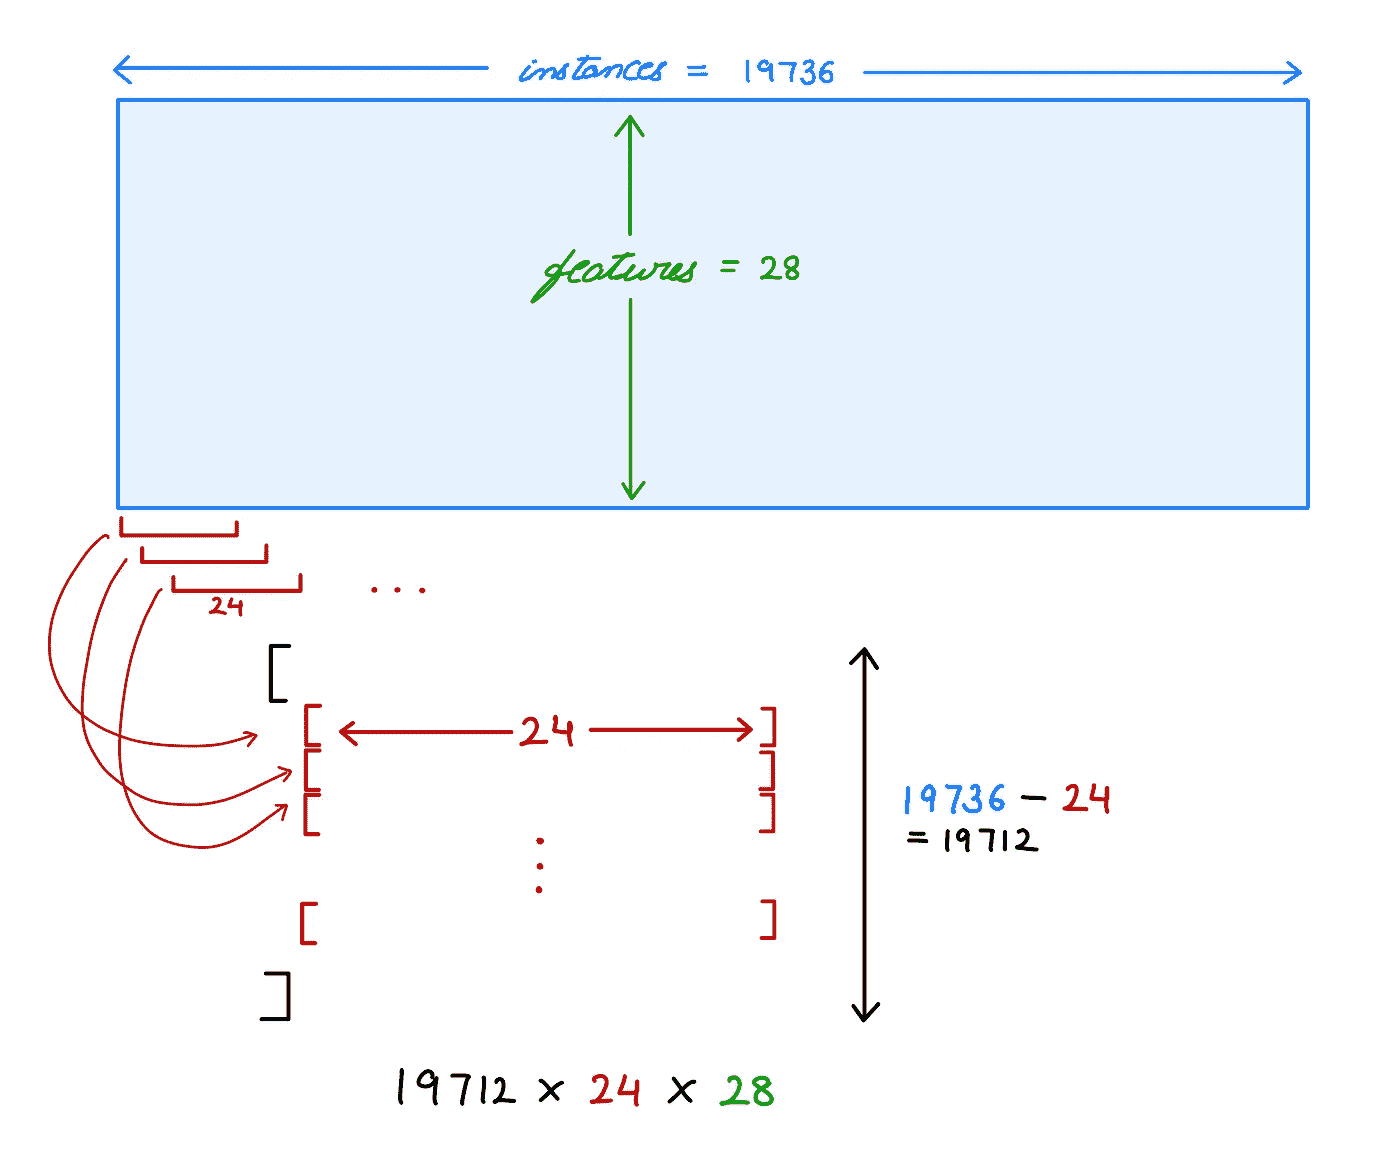 instances = 19736
features = 28
24
. . .
24
19736 - 24
= 19712
19712 × 24 × 28